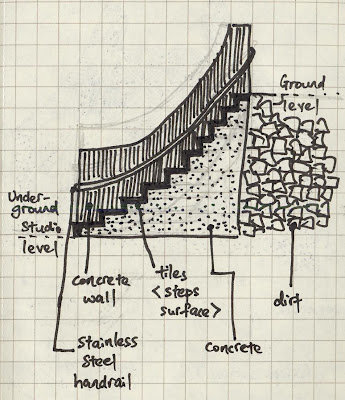 Ground
level
Under-
ground
Studio
level
concrete
wall
tiles
<steps
surface>
concrete
dirt
stainless
steel
handrail